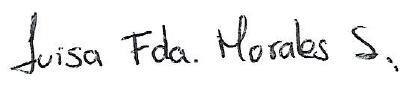 Luisa Fda. Morales S.